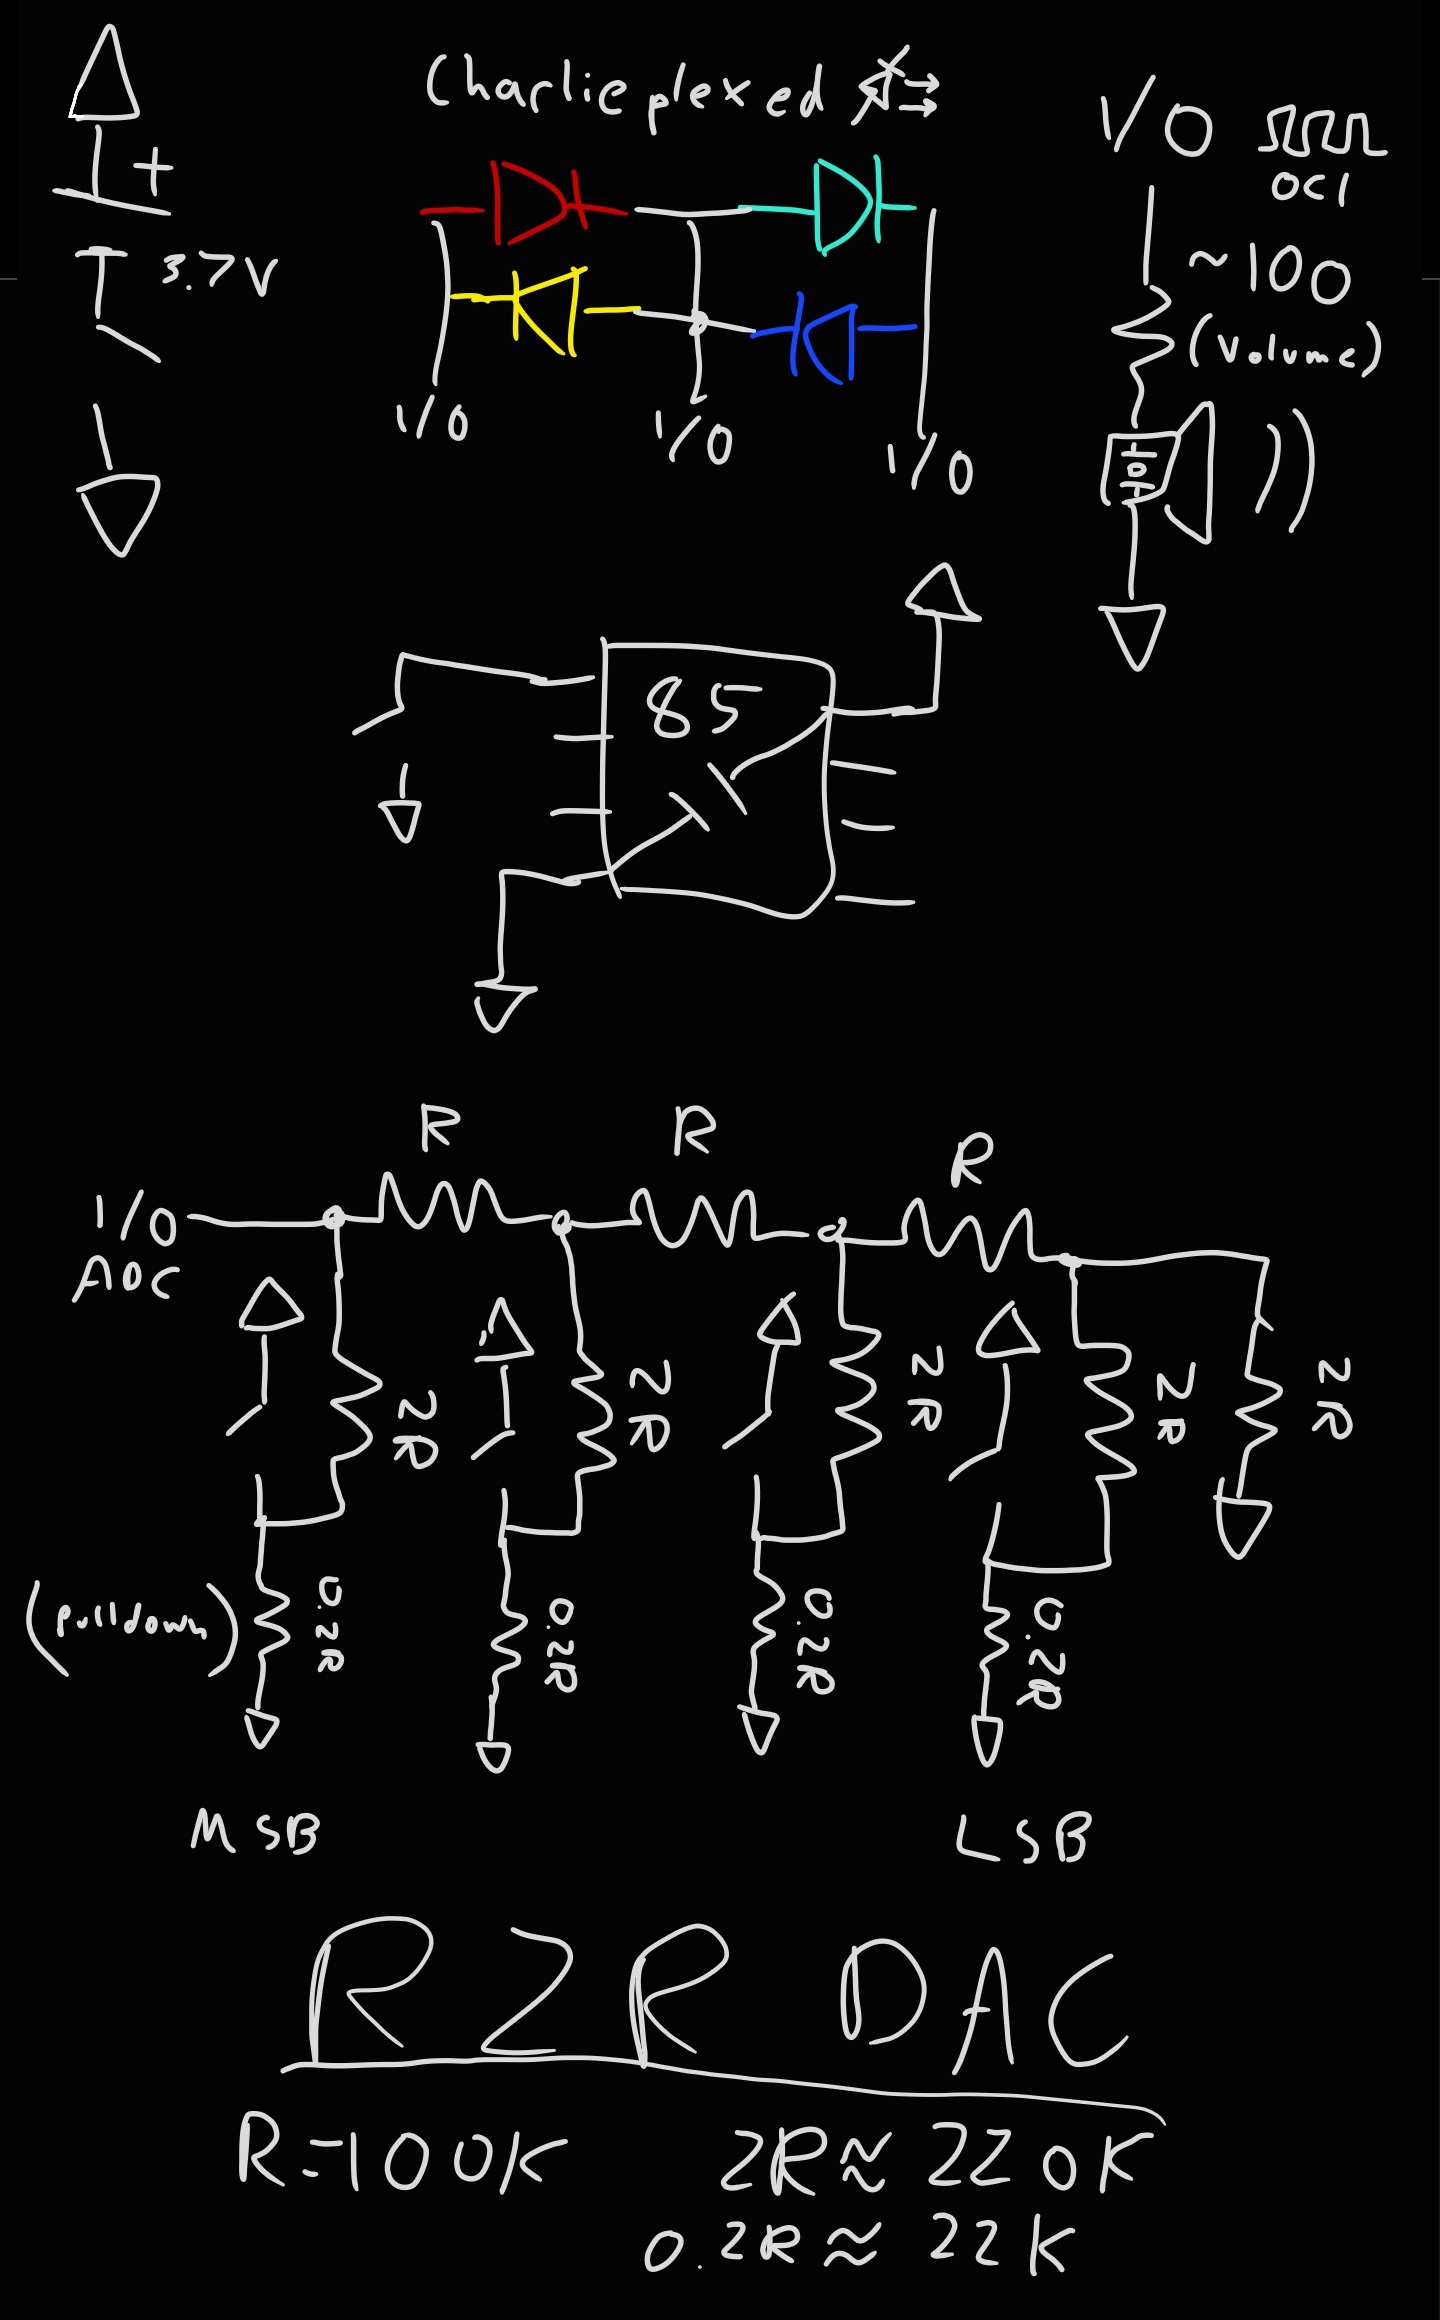 Charlieplexed
+
3.7V
I/O
I/O
I/O
I/O
OC1
~100
(Volume)
85
R
R
R
I/O
ADC
2R
2R
2R
2R
2R
(pulldown)
0.2R
0.2R
0.2R
0.2R
MSB
LSB
R2R DAC
R=100K
2R≈220K
0.2R≈22K